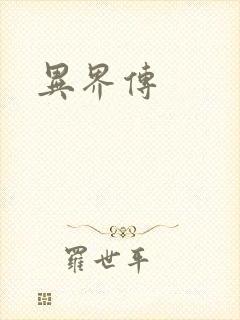 異界傳
羅世平